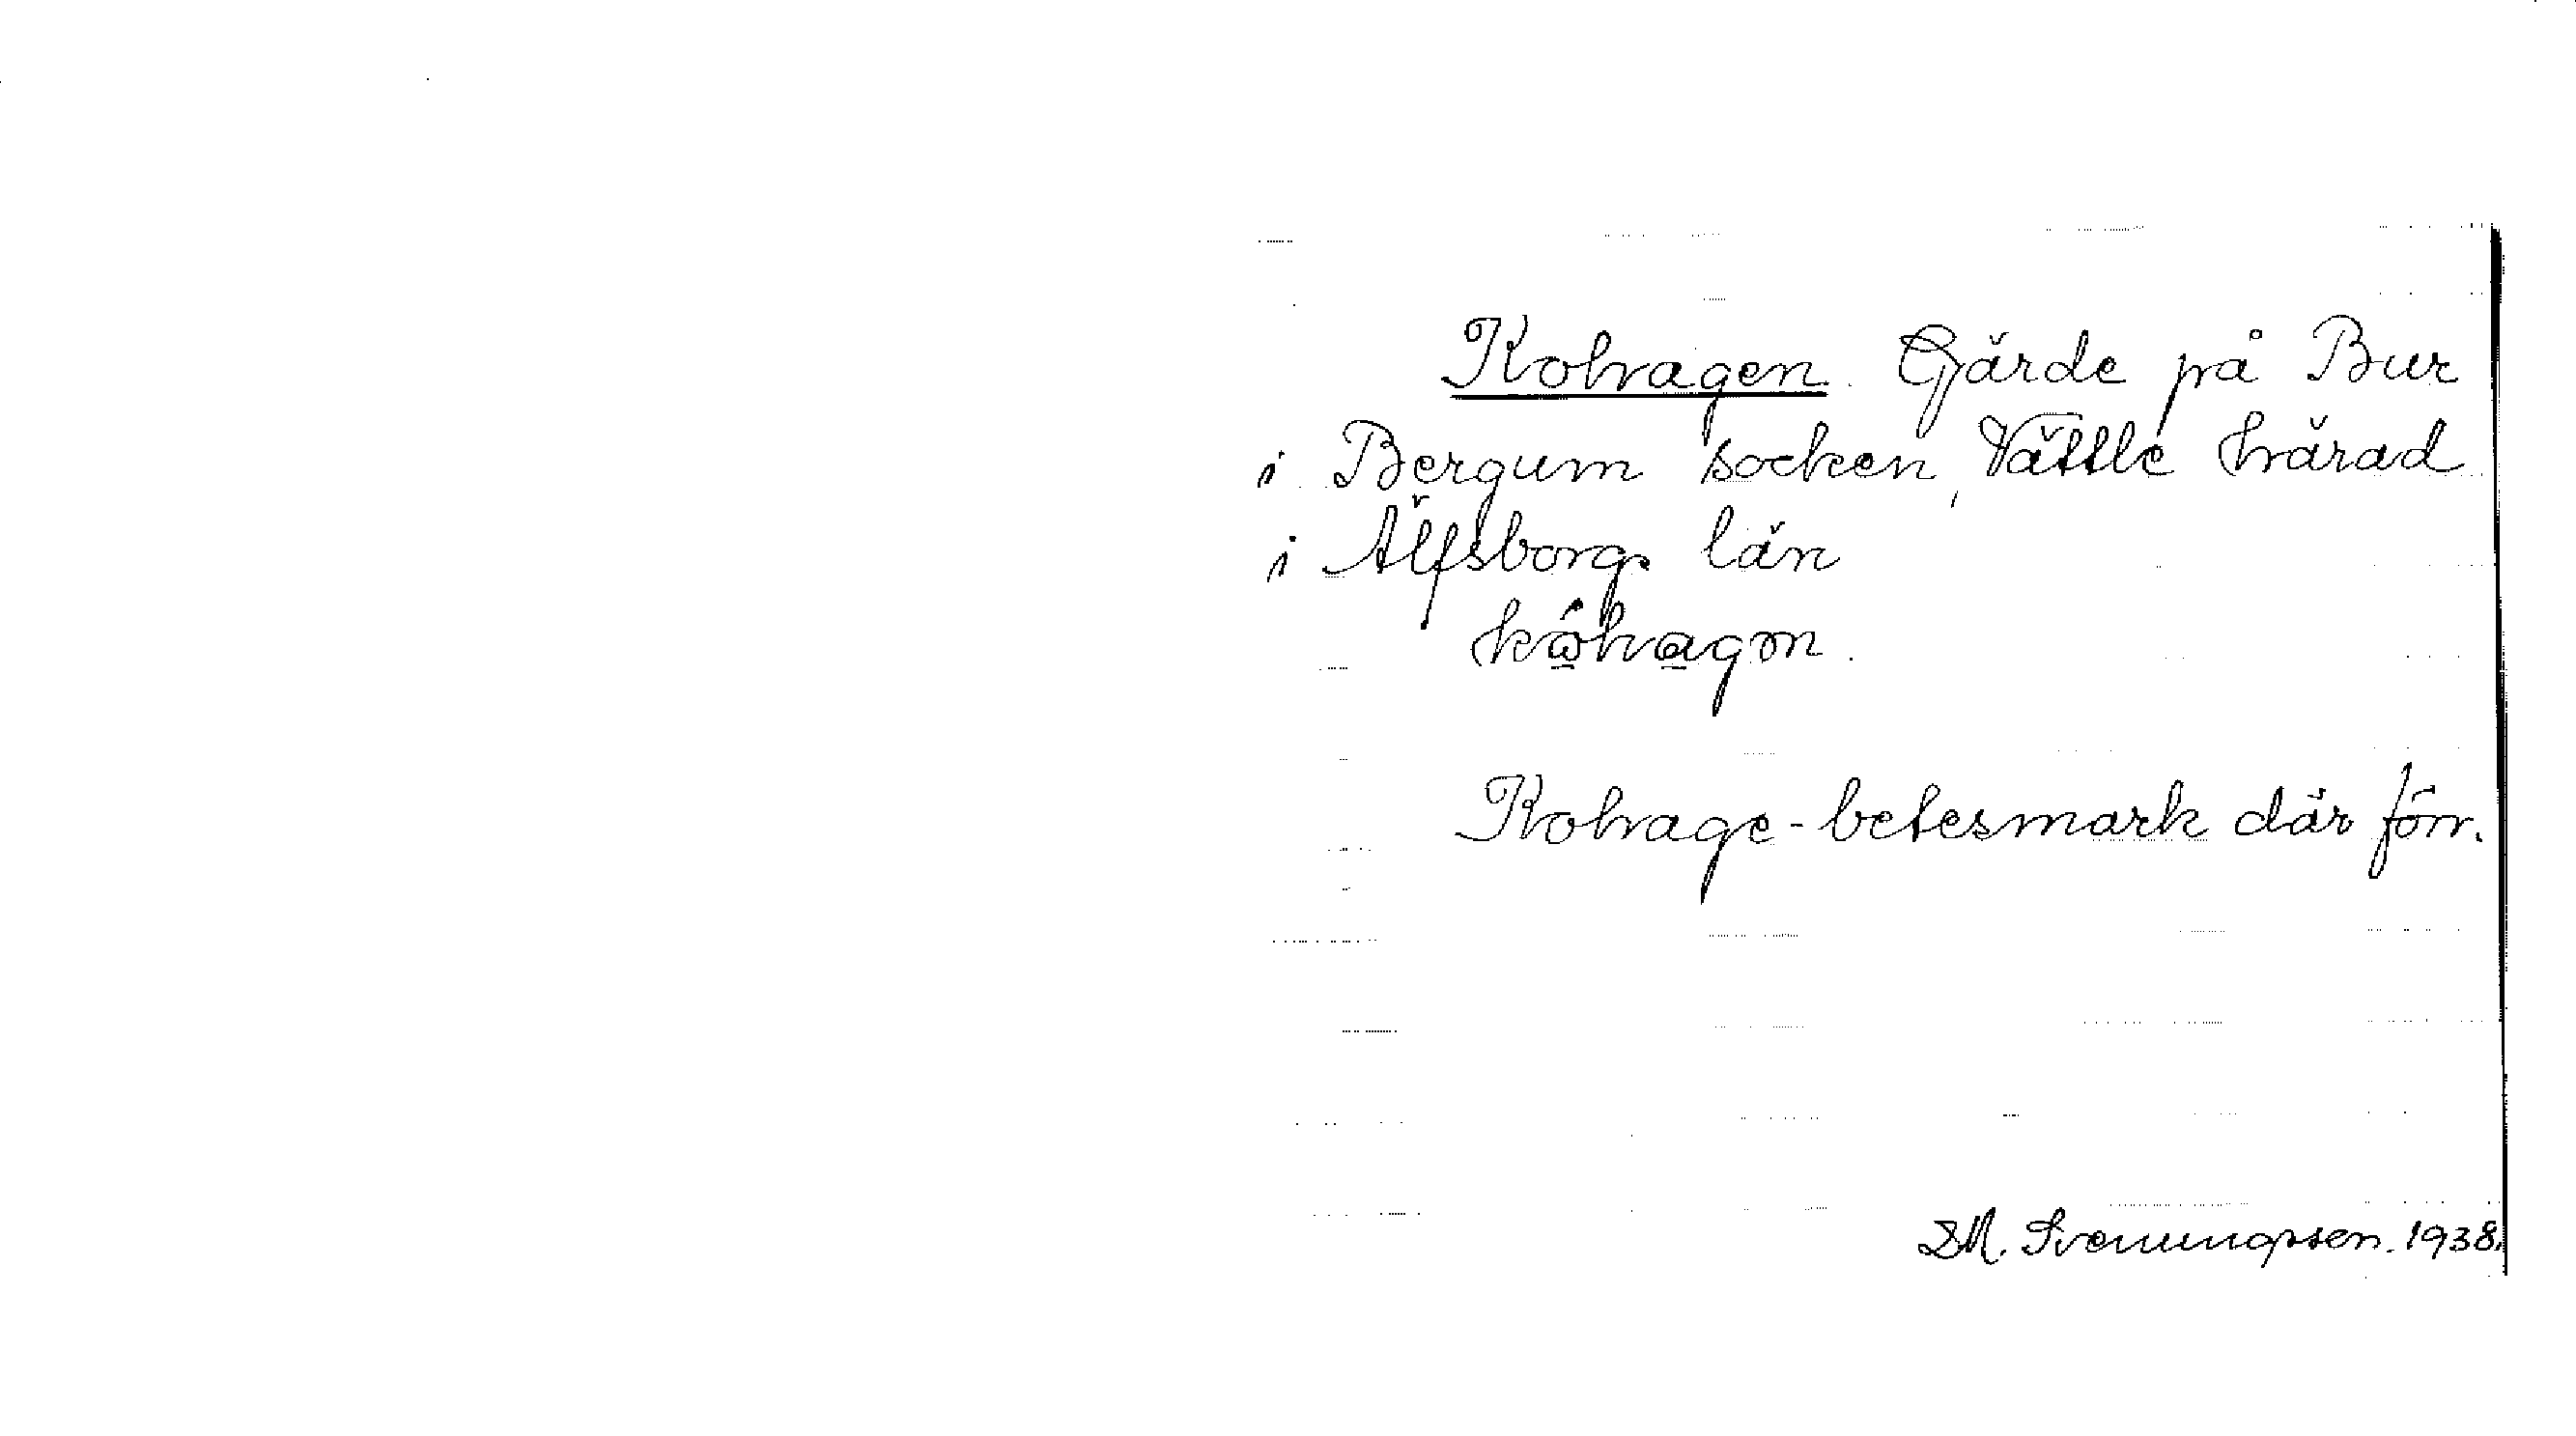 Kohagen. Gärde på Bur
i Bergum socken, Vättle härad
i Älfsborgs län
kω̂hagon.
Kohage-betesmark där förr.
D.M. Svenungsson. 1938.